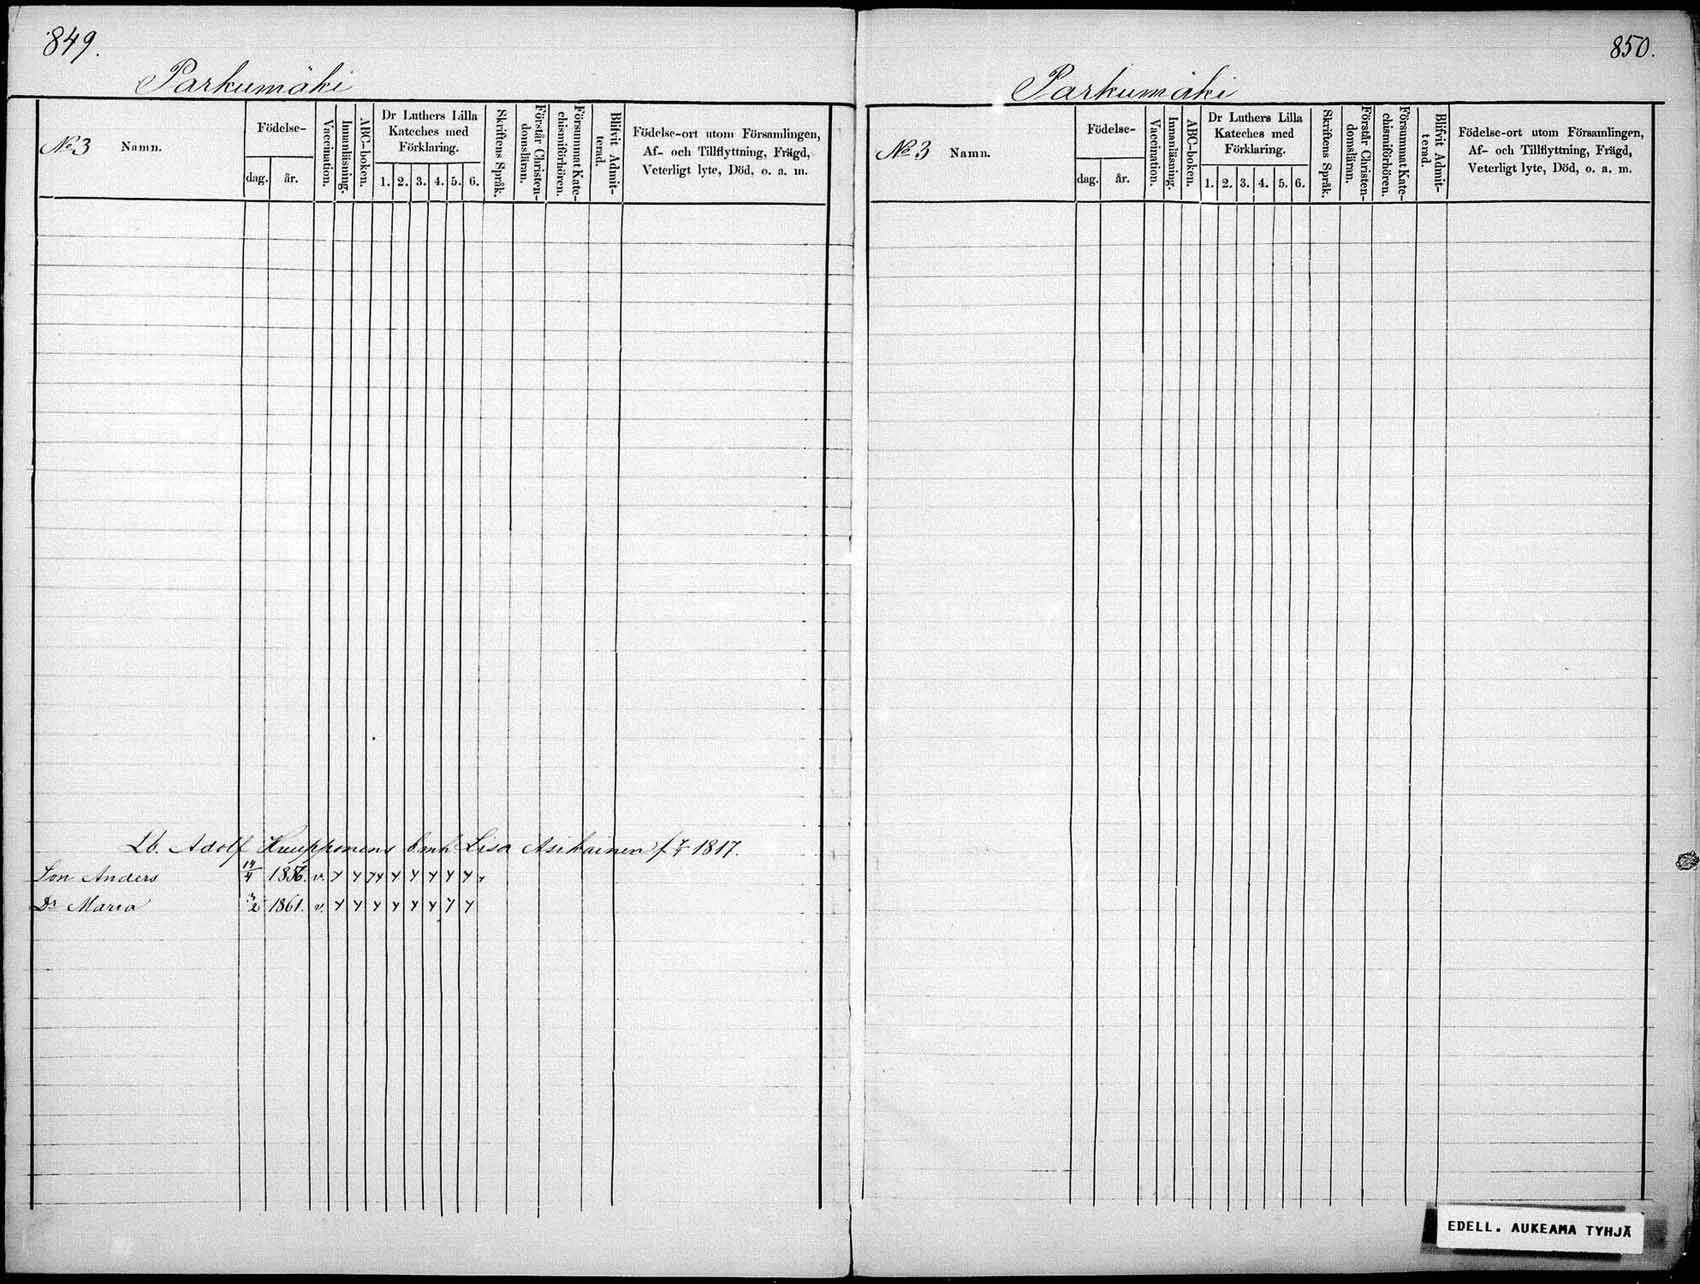 849.
Parkumäki
No 3 Namn.
Födelse-
dag. år.
Vaccination.
Innanläsning.
ABC-boken.
Dr Luthers Lilla
Kateches med
Förklaring.
1. 2. 3. 4. 5. 6.
Skriftens Språk.
Förstår Christen-
domslärnn.
Försummat Kate-
chismiförhören.
Blifvit Admit-
terad.
Födelse-ort utom Församlingen,
Af- och Tillflyttning, Frägd,
Veterligt lyte, Död, o. a. m.
Lb. Adolf Kuupponens Lisa Asikainen f. 1817.
Son Anders 1856. v.
Dr Maria 1861. v.
850.
Parkumäki
No 3 Namn.
Födelse-
dag. år.
Vaccination.
Innanläsning.
ABC-boken.
Dr Luthers Lilla
Kateches med
Förklaring.
1. 2. 3. 4. 5. 6.
Skriftens Språk.
Förstår Christen-
domslärnn.
Försummat Kate-
chismiförhören.
Blifvit Admit-
terad.
Födelse-ort utom Församlingen,
Af- och Tillflyttning, Frägd,
Veterligt lyte, Död, o. a. m.
EDELL. AUKEAMA TYHJÄ